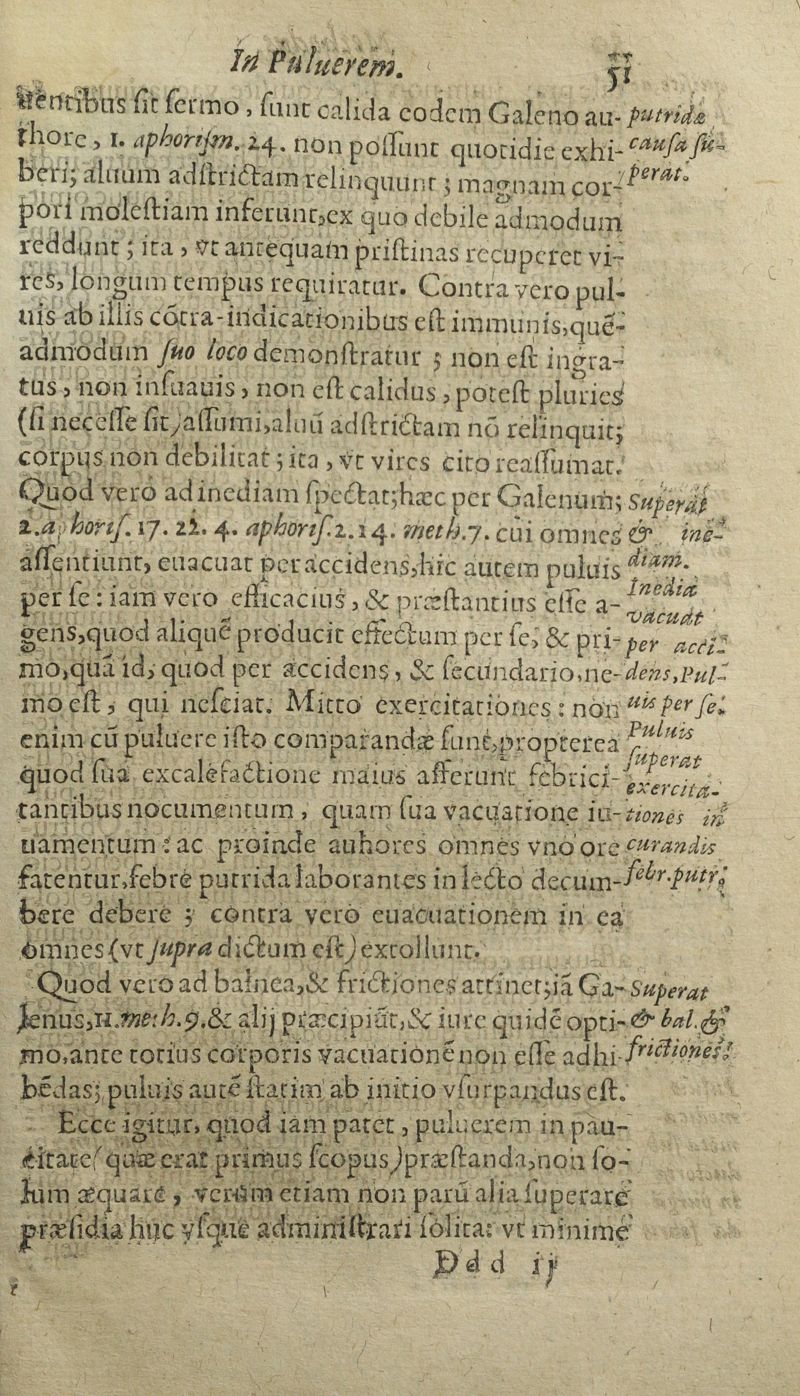 In Puluerem. 51
uentibus fit sermo, sunt calida eodem Galeno au- putrida
thore, 1. aphorism. 24. non possunt quotidie exhi- causa su-
beri; aluum adstrictam relinquunt; magnam cor- perat.
pori molestiam inferunt,ex quo debile admodum
reddunt; ita, vt antequam pristinas recuperet vi-
res, longum tempus requiratur. Contra vero pul-
uis ab illis cōtra-indicationibus est immunis,quē-
admodum suo loco demonstratur; non est ingra-
tus, non insuauis, non est calidus, potest pluries
(si necesse sit)assumi,aluū adstrictam nō relinquit;
corpus non debilitat; ita, vt vires cito reassumat.
Quod vero ad inediam spectat;hæc per Galenum; Superat
2.aphoris. 17. 22. 4. aphoris.2.14. meth.7. cui omnes & ine-
assentiunt, euacuat per accidens,hic autem puluis diam.
per se: iam vero efficacius, & præstantius esse a- Inedia
gens,quod aliquē producit effectum per se, & pri- vacuat per acci-
mo,quā id, quod per accidens, & secundario,ne- dens,Pul-
mo est, qui nesciat. Mitto exercitationes: non uis per se.
enim cū puluere isto comparandæ sunt,propterea Puluis
quod sua excalefactione maius afferunt febrici- superat exercita-
tantibus nocumentum, quam sua vacuatione iu- tiones in
uamentum: ac proinde authores omnes vno ore curandis
fatentur,febre putrida laborantes in lecto decum- febr.putr.
bere debere; contra vero euacuationem in ea
omnes(vt supra dictum est)extollunt.
Quod vero ad balnea,& frictiones attinet;iā Ga- Superat
lenus,11.meth.9.& alij præcipiūt,& iure quidē opti- & bal.&
mo,ante totius corporis vacuationē non esse adhi- frictiones.
bēdas; puluis autē statim ab initio vsurpandus est.
Ecce igitur, quod iam patet, puluerem in pau-
citate(quæ erat primus scopus)præstanda,non so-
lum æquare, verum etiam non parū alia superare
præsidia huc vsque administrari solita: vt minime
Ddd ij